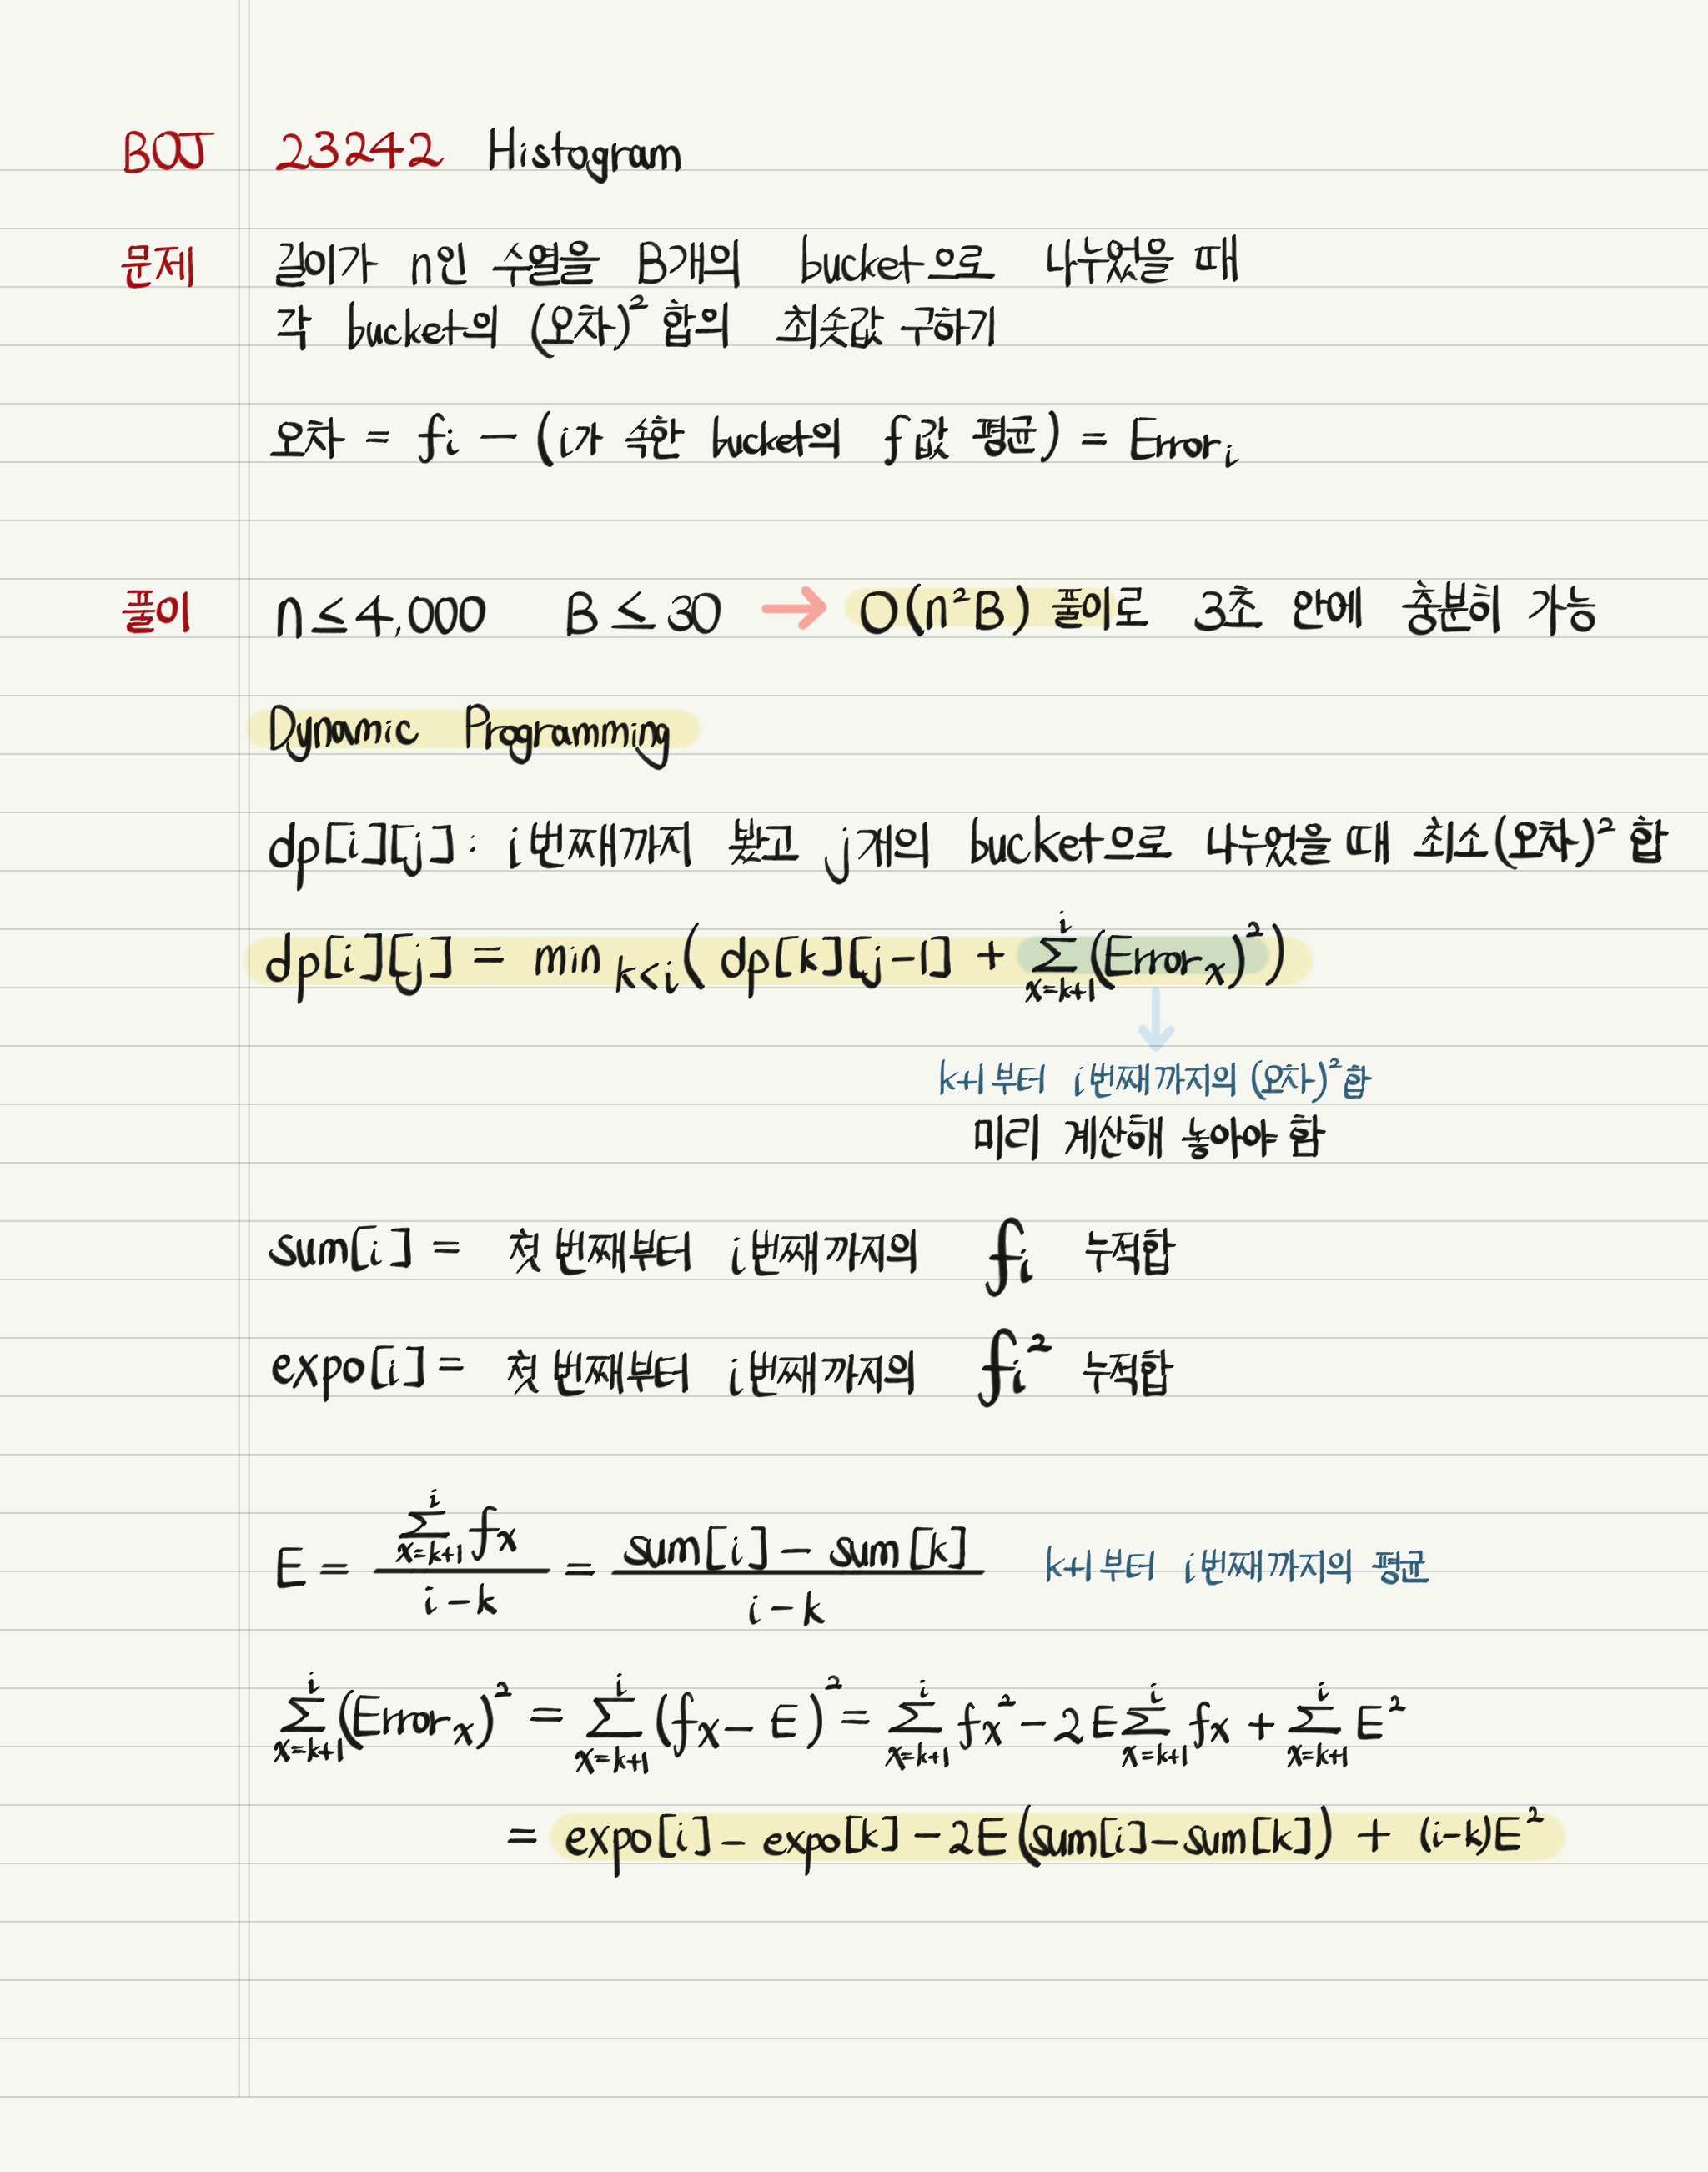 BOJ 23242 Histogram
문제 길이가 n인 수열을 B개의 bucket으로 나누었을 때
각 bucket의 (오차)² 합의 최솟값 구하기
오차 = fᵢ − (i가 속한 bucket의 f값 평균) = Errorᵢ
풀이 n ≤ 4,000 B ≤ 30 → O(n²B) 풀이로 3초 안에 충분히 가능
Dynamic Programming
dp[i][j] : i번째까지 봤고 j개의 bucket으로 나누었을 때 최소(오차)² 합
dp[i][j] = min k<i ( dp[k][j−1] + Σ_{x=k+1}^{i} (Error_x)² )
k+1부터 i번째까지의 (오차)²합
미리 계산해 놓아야 함
sum[i] = 첫 번째부터 i번째까지의 fᵢ 누적합
expo[i] = 첫 번째부터 i번째까지의 fᵢ² 누적합
E = (Σ_{x=k+1}^{i} f_x) / (i−k) = (sum[i] − sum[k]) / (i−k) k+1부터 i번째까지의 평균
Σ_{x=k+1}^{i} (Error_x)² = Σ_{x=k+1}^{i} (f_x − E)² = Σ_{x=k+1}^{i} f_x² − 2E Σ_{x=k+1}^{i} f_x + Σ_{x=k+1}^{i} E²
= expo[i] − expo[k] − 2E(sum[i]−sum[k]) + (i−k)E²